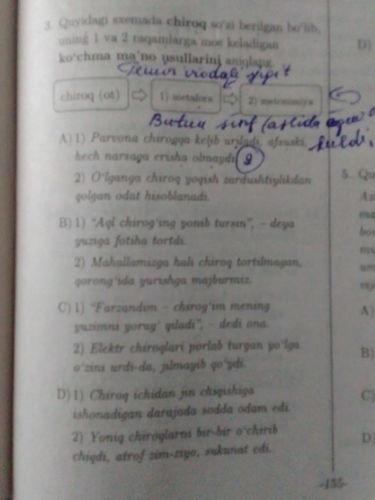 3. Quyidagi sxemada chiroq so'zi berilgan bo'lib,
uning 1 va 2 raqamlarga mos keladigan
ko'chma ma'no usullarini aniqlang.
chiroq (ot) ⇨ 1) metafora ⇨ 2) metonimiya
A) 1) Parvona chiroqqa kelib uriladi, afsuski,
hech narsaga erisha olmaydi.
2) O'lganga chiroq yoqish zardushtiylikdan
qolgan odat hisoblanadi.
B) 1) "Aql chirog'ing yonib tursin", – deya
yuziga fotiha tortdi.
2) Mahallamizga hali chiroq tortilmagan,
qorong'ida yurishga majburmiz.
C) 1) "Farzandim – chirog'im mening
yuzimni yorug' qiladi", – dedi ona.
2) Elektr chiroqlari porlab turgan yo'lga
o'zini urdi-da, jilmayib qo'ydi.
D) 1) Chiroq ichidan jin chiqishiga
ishonadigan darajada sodda odam edi.
2) Yoniq chiroqlarni bir-bir o'chirib
chiqdi, atrof zim-ziyo, sukunat edi.
D)
5. Qu
A)
B)
C)
D)
-155-